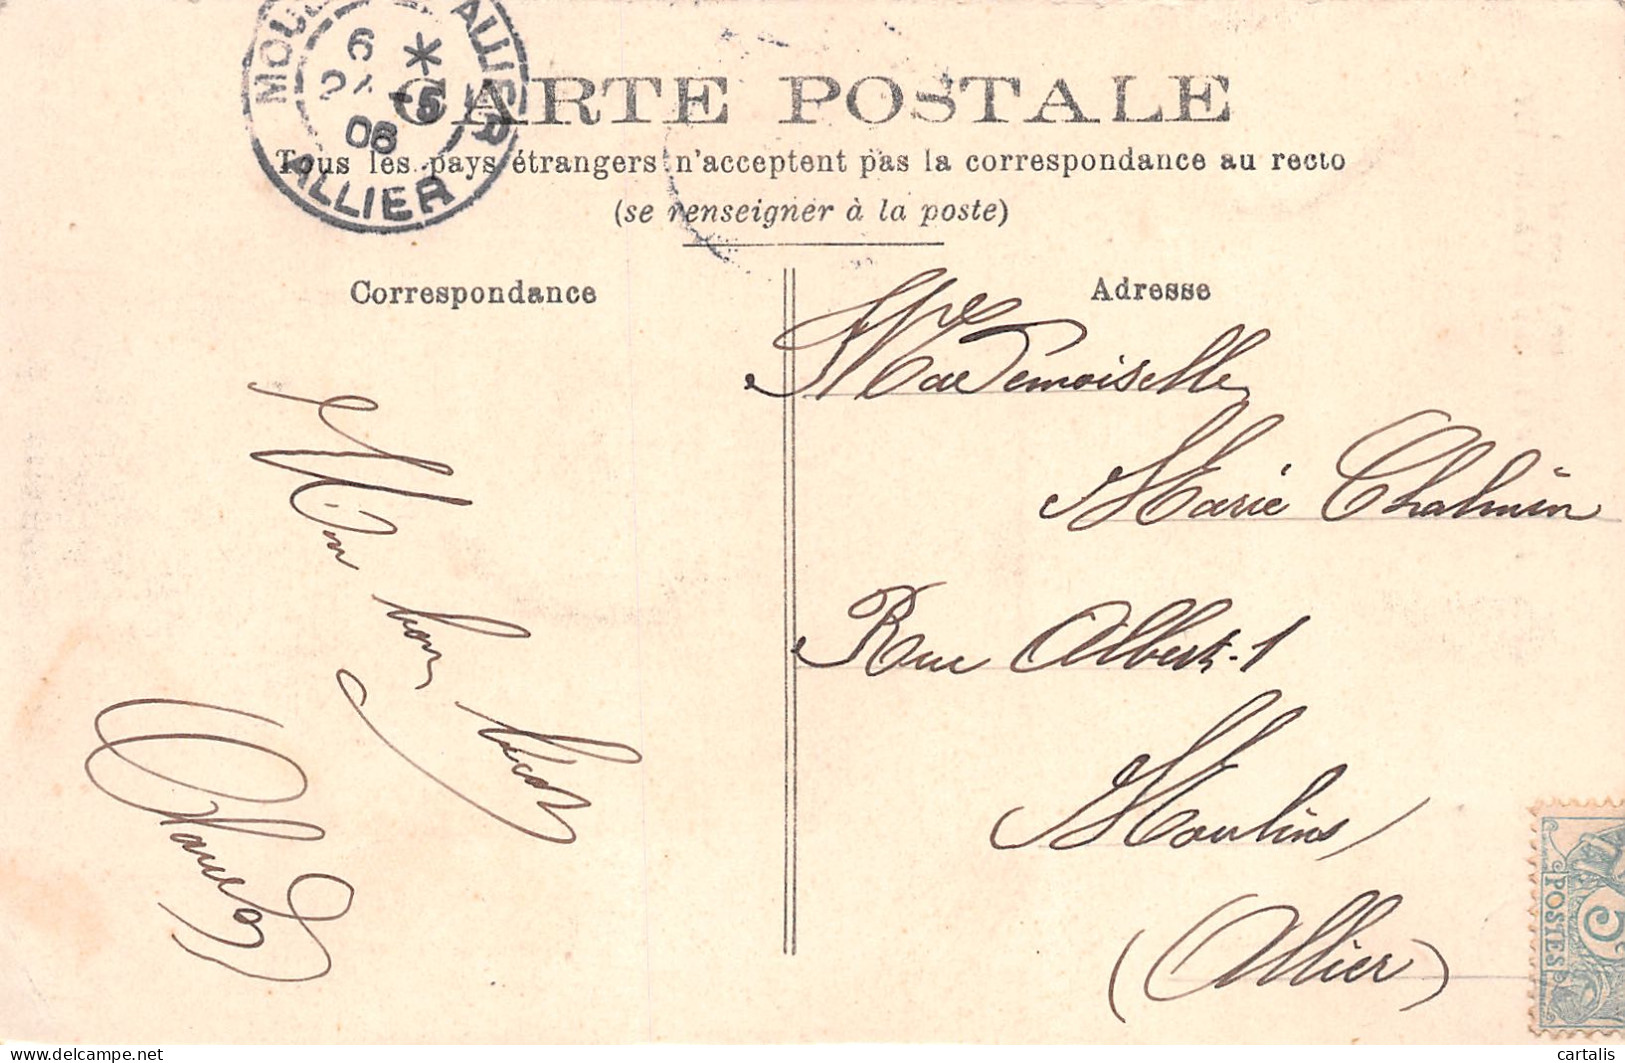 CARTE POSTALE
Tous les pays étrangers n'acceptent pas la correspondance au recto
(se renseigner à la poste)
Correspondance
Adresse
6 *
06
ALLIER
Mademoiselle
Marie Chalmin
Rue Albert-1
Moulins
(Allier)
Mon bon
POSTES
5c
delcampe.net
cartalis